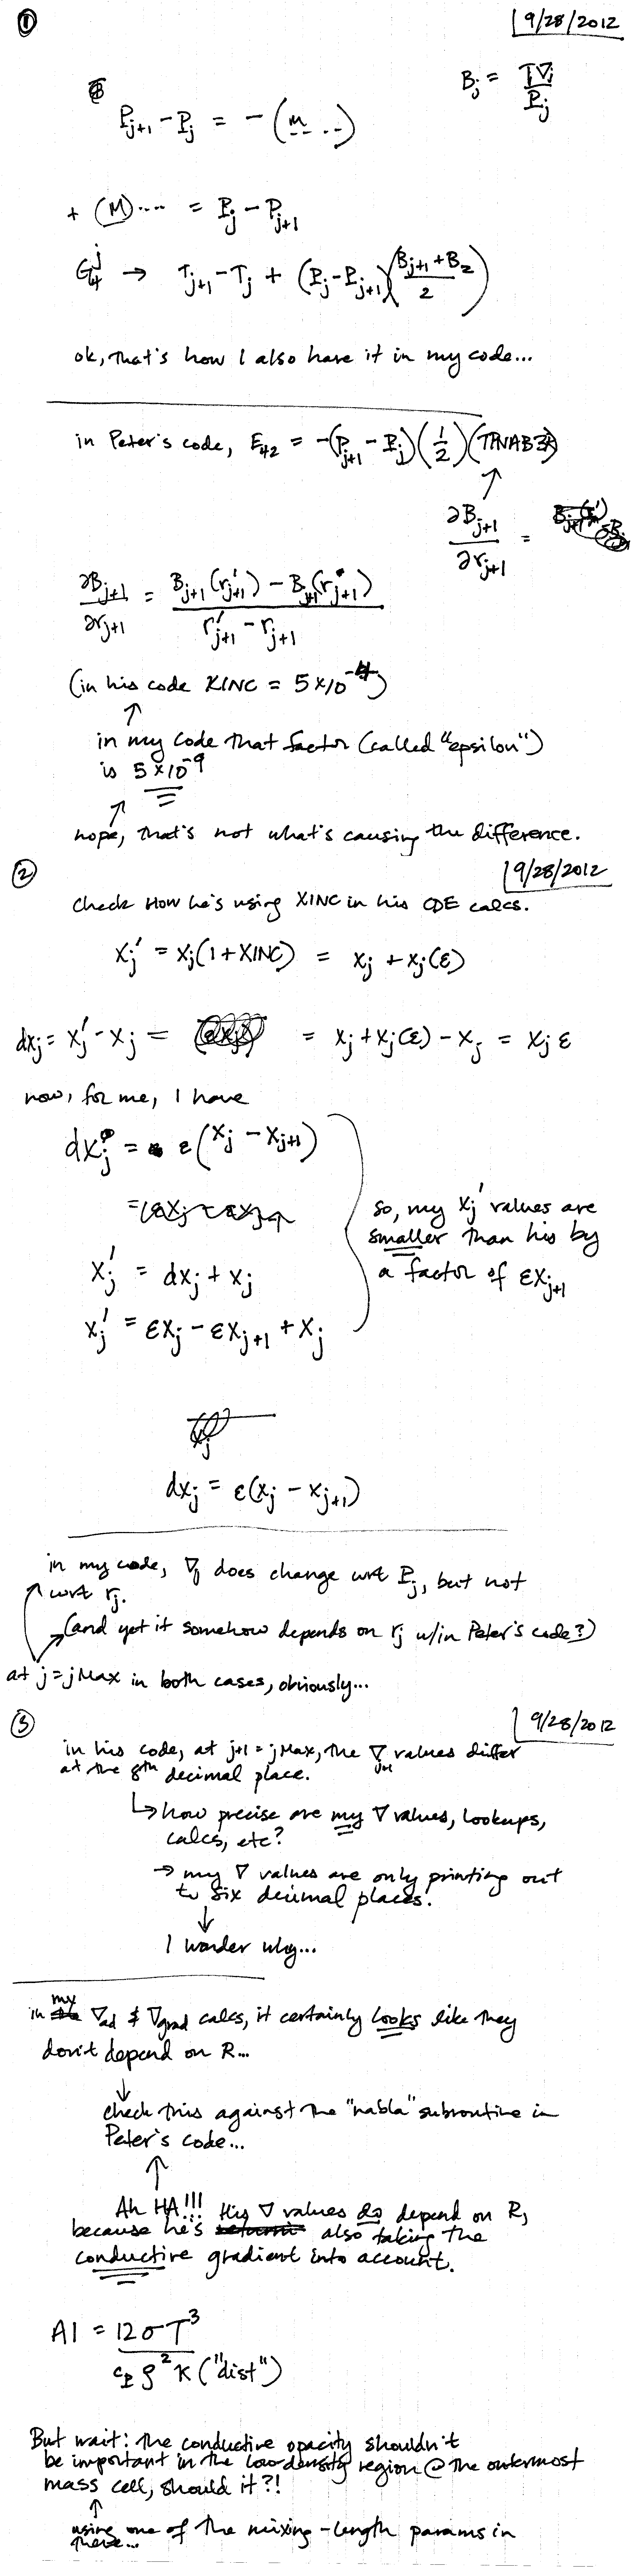 ① 9/28/2012
B_j = T∇_j / P_j
P_{j+1} - P_j = -(m...)
+ (M).... = P_j - P_{j+1}
G_4^j → T_{j+1} - T_j + (P_j - P_{j+1})((B_{j+1} + B_2)/2)
ok, that's how I also have it in my code...
in Peter's code, E_{42} = -(P_{j+1} - P_j)(1/2)(TPNAB)
↑
∂B_{j+1}/∂r_{j+1} =
∂B_{j+1}/∂r_{j+1} = (B_{j+1}(r'_{j+1}) - B_{j+1}(r_{j+1})) / (r'_{j+1} - r_{j+1})
(in his code XINC = 5×10^{-4})
↑
in my code that factor (called "epsilon")
is 5×10^{-9}
↑
nope, that's not what's causing the difference.
② 9/28/2012
check How he's using XINC in his CDE calcs.
x_j' = x_j(1+XINC) = x_j + x_j(ε)
dx_j = x_j' - x_j = = x_j + x_j(ε) - x_j = x_j ε
now, for me, I have
dx_j = ε(x_j - x_{j+1})
x_j' = dx_j + x_j
x_j' = εx_j - εx_{j+1} + x_j
so, my x_j' values are
smaller than his by
a factor of εx_{j+1}
dx_j = ε(x_j - x_{j+1})
in my code, ∇_j does change wrt P_j, but not
wrt r_j.
(and yet it somehow depends on r_j w/in Peter's code?)
at j=jMax in both cases, obviously...
③ 9/28/2012
in his code, at j+1 = jMax, the ∇_{j+1} values differ
at the 8th decimal place.
↳ how precise are my ∇ values, lookups,
calcs, etc?
→ my ∇ values are only printing out
to six decimal places.
↓
I wonder why...
in my ∇_ad & ∇_grad calcs, it certainly looks like they
don't depend on R...
↓
check this against the "nabla" subroutine in
Peter's code...
↑
Ah HA!!! His ∇ values do depend on R,
because he's also taking the
conductive gradient into account.
A1 = 12σT^3 / (c_P ρ^2 κ ("dist"))
But wait: the conductive opacity shouldn't
be important in the low density region @ the outermost
mass cell, should it?!
↑
using one of the mixing-length params in
there...